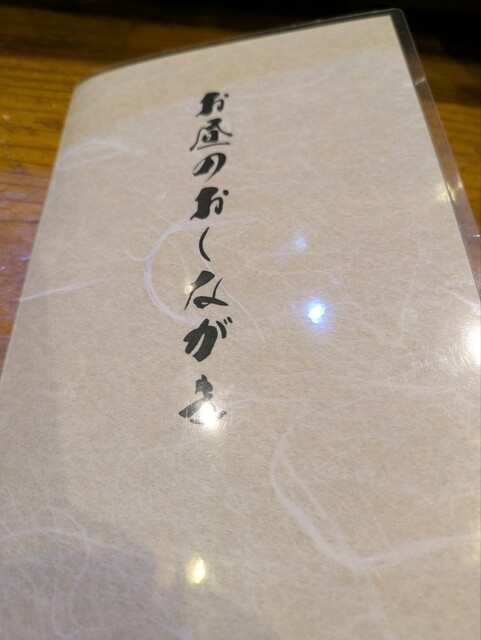 お昼のおしながき